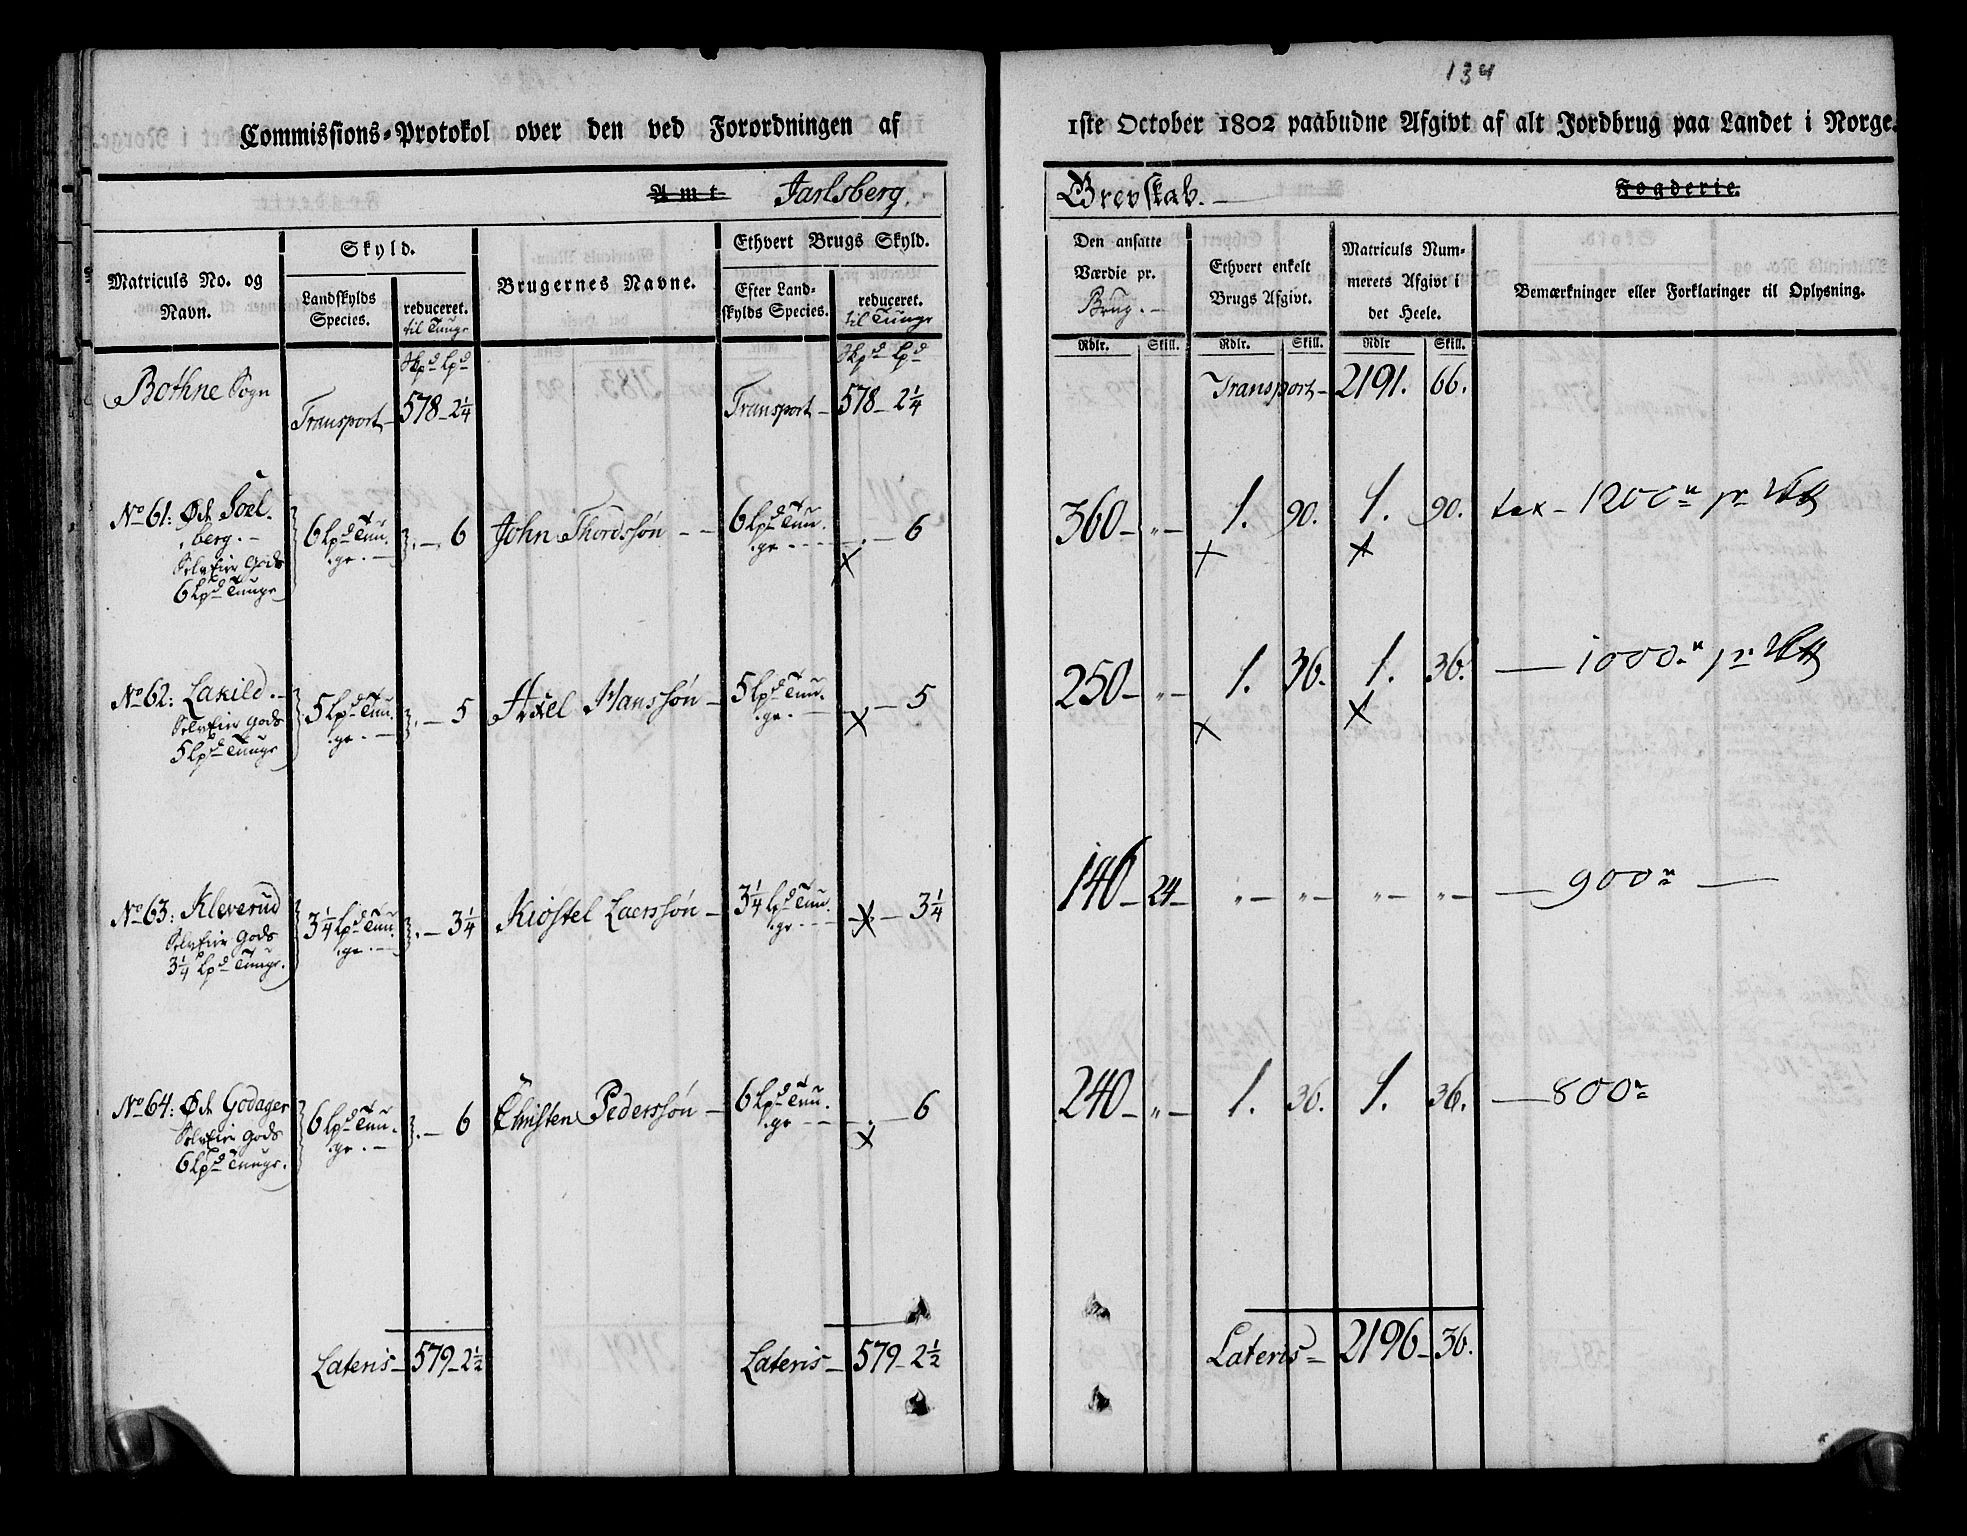 134
Commissions-Protokol over den ved Forordningen af 1ste October 1802 paabudne Afgivt af alt Jordbrug paa Landet i Norge.
Amt Jarlsberg. Grevskab. Fogderie.
Matriculs No. og Navn.
Skyld.
Landskylds Species.
reduceret. til Tunge
Brugernes Navne.
Ethvert Brugs Skyld.
Efter Landskylds Species.
reduceret. til Tunge
Den ansatte Værdie pr. Brug.
Ethvert enkelt Brugs Afgivt.
Matriculs Nummerets Afgivt i det Heele.
Bemærkninger eller Forklaringer til Oplysning.
Skpd Lpd Skpd Lpd Rdlr. Skill. Rdlr. Skill. Rdlr Skill.
Bothne Sogn Transport 578 - 2 1/4 Transport - 578 - 2 1/4 Transport - 2191. 66.
No 61: Ød Soel- 6 Lpd Tun- . - 6 John Thordssøn - - 6 Lpd Tun- . - 6 360 - " - 1. 90. 1. 90. tax - 1200
berg. - ge. - ge. - x x x
Selveier Gods
6 Lpd Tunge
No 62: Lakild. - 5 Lpd Tun- . - 5 Axel Hanssøn - 5 Lpd Tun- - 5 250 - " - 1. 36. 1. 36. — 1000
Selveier Gods ge. - ge. - x x x
5 Lpd Tunge
No 63: Kleverud 3 1/4 Lpd Tun- . - 3 1/4 Kiøstel Laerssøn - 3 1/4 Lpd Tun- x - 3 1/4 146 - 24 - " - " - " - " - — 900 —
Selveier Gods ge. - ge. -
3 1/4 Lpd Tunge.
No 64: Ød Godager 6 Lpd Tun- . - 6 Christen Pederssøn - 6 Lpd Tun- . - 6 240 - " - 1. 36. 1. 36. — 800
Selveier Gods ge. - ge - x
6 Lpd Tunge.
Lateris - 579 - 2 1/2 Lateris - 579 - 2 1/2 Lateris = 2196 - 36.